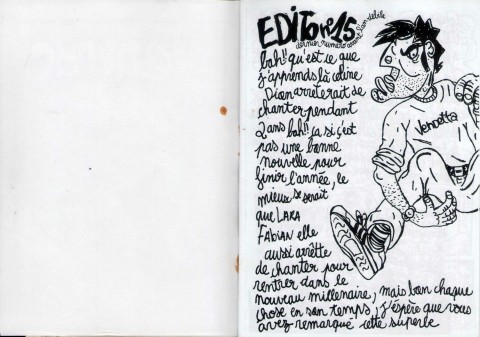 EDITO n°15
dernier numéro avant l'an debile
bah!! qu'est ce que
j'apprends là celine
Dion arreterait de
chanter pendant
2 ans bah!! ça si c'est
pas une bonne
nouvelle pour
finir l'année, le
mieux se serait
que LARA
FABIAN elle
aussi arrêtte
de chanter pour
rentrer dans le
nouveau millenaire, mais bon chaque
chose en son temps, j'éspère que vous
avez remarqué cette superbe
Vendetta